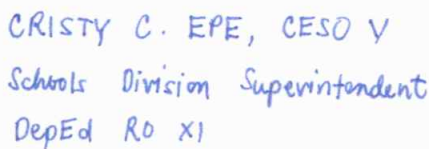 CRISTY C. EPE, CESO V
Schools Division Superintendent
DepEd RO XI